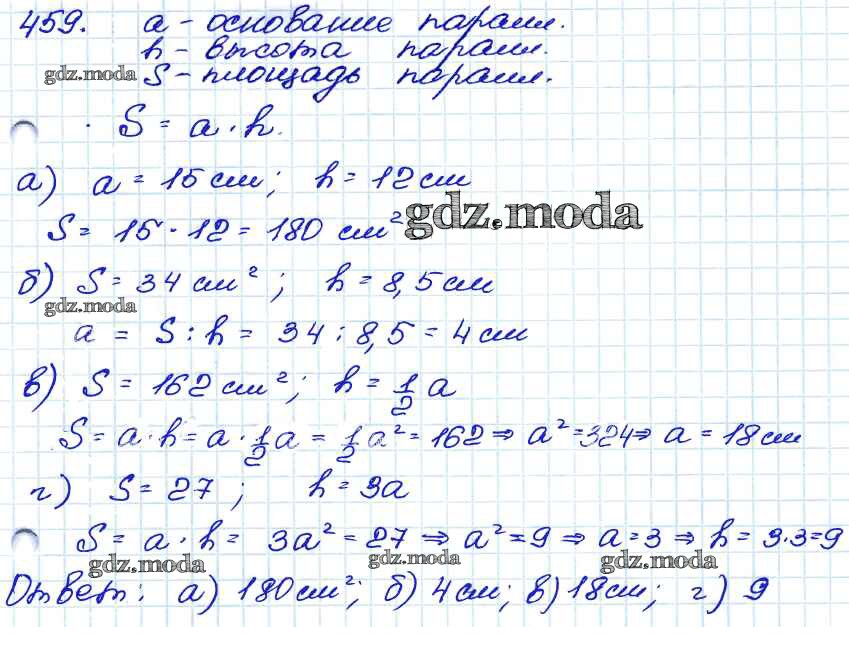 459. a - основание паралл.
h - высота паралл.
gdz.moda S - площадь паралл.
S = a · h.
а) a = 15 см; h = 12 см
S = 15 · 12 = 180 см²
gdz.moda
б) S = 34 см²; h = 8,5 см
gdz.moda
a = S : h = 34 : 8,5 = 4 см
в) S = 162 см²; h = 1/2 a
S = a · h = a · 1/2 a = 1/2 a² = 162 ⇒ a² = 324 ⇒ a = 18 см
г) S = 27; h = 3a
S = a · h = 3a² = 27 ⇒ a² = 9 ⇒ a = 3 ⇒ h = 3·3 = 9
gdz.moda gdz.moda gdz.moda
Ответ: а) 180 см²; б) 4 см; в) 18 см; г) 9